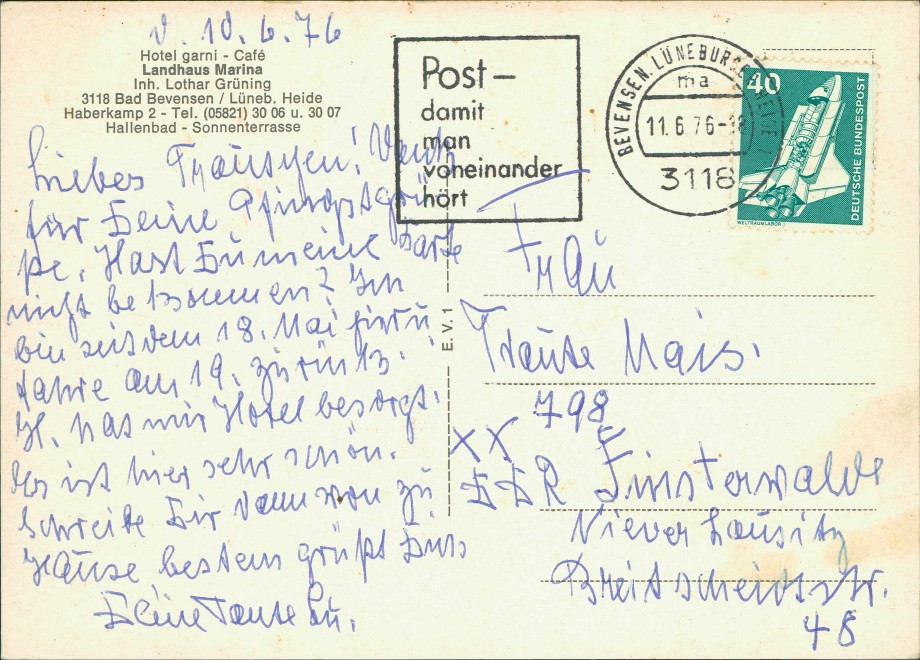 d. 10.6.76
Hotel garni - Café
Landhaus Marina
Inh. Lothar Grüning
3118 Bad Bevensen / Lüneb. Heide
Haberkamp 2 - Tel. (05821) 30 06 u. 30 07
Hallenbad - Sonnenterrasse
Liebes Trautchen! Dank
für Deine Pfingstgrü
ße. Hast Du meine Karte
nicht bekommen? Ich
bin seit dem 18. Mai hier u
fahre am 19. zurück.
H. hat mir Hotel besorgt.
Es ist hier sehr schön.
Schreibe Dir dann von zu
Hause bestens grüßt Dich
Deine Tante Lu.
Post –
damit
man
voneinander
hört
BEVENSEN, LÜNEBURGER HEIDE 1
ma
11.6.76-18
3118
40
DEUTSCHE BUNDESPOST
WELTRAUMLABOR
E.V.1
Frau
Traute
798
XX
DDR Finsterwalde
Nieder Lausitz
Breitscheidstr.
48